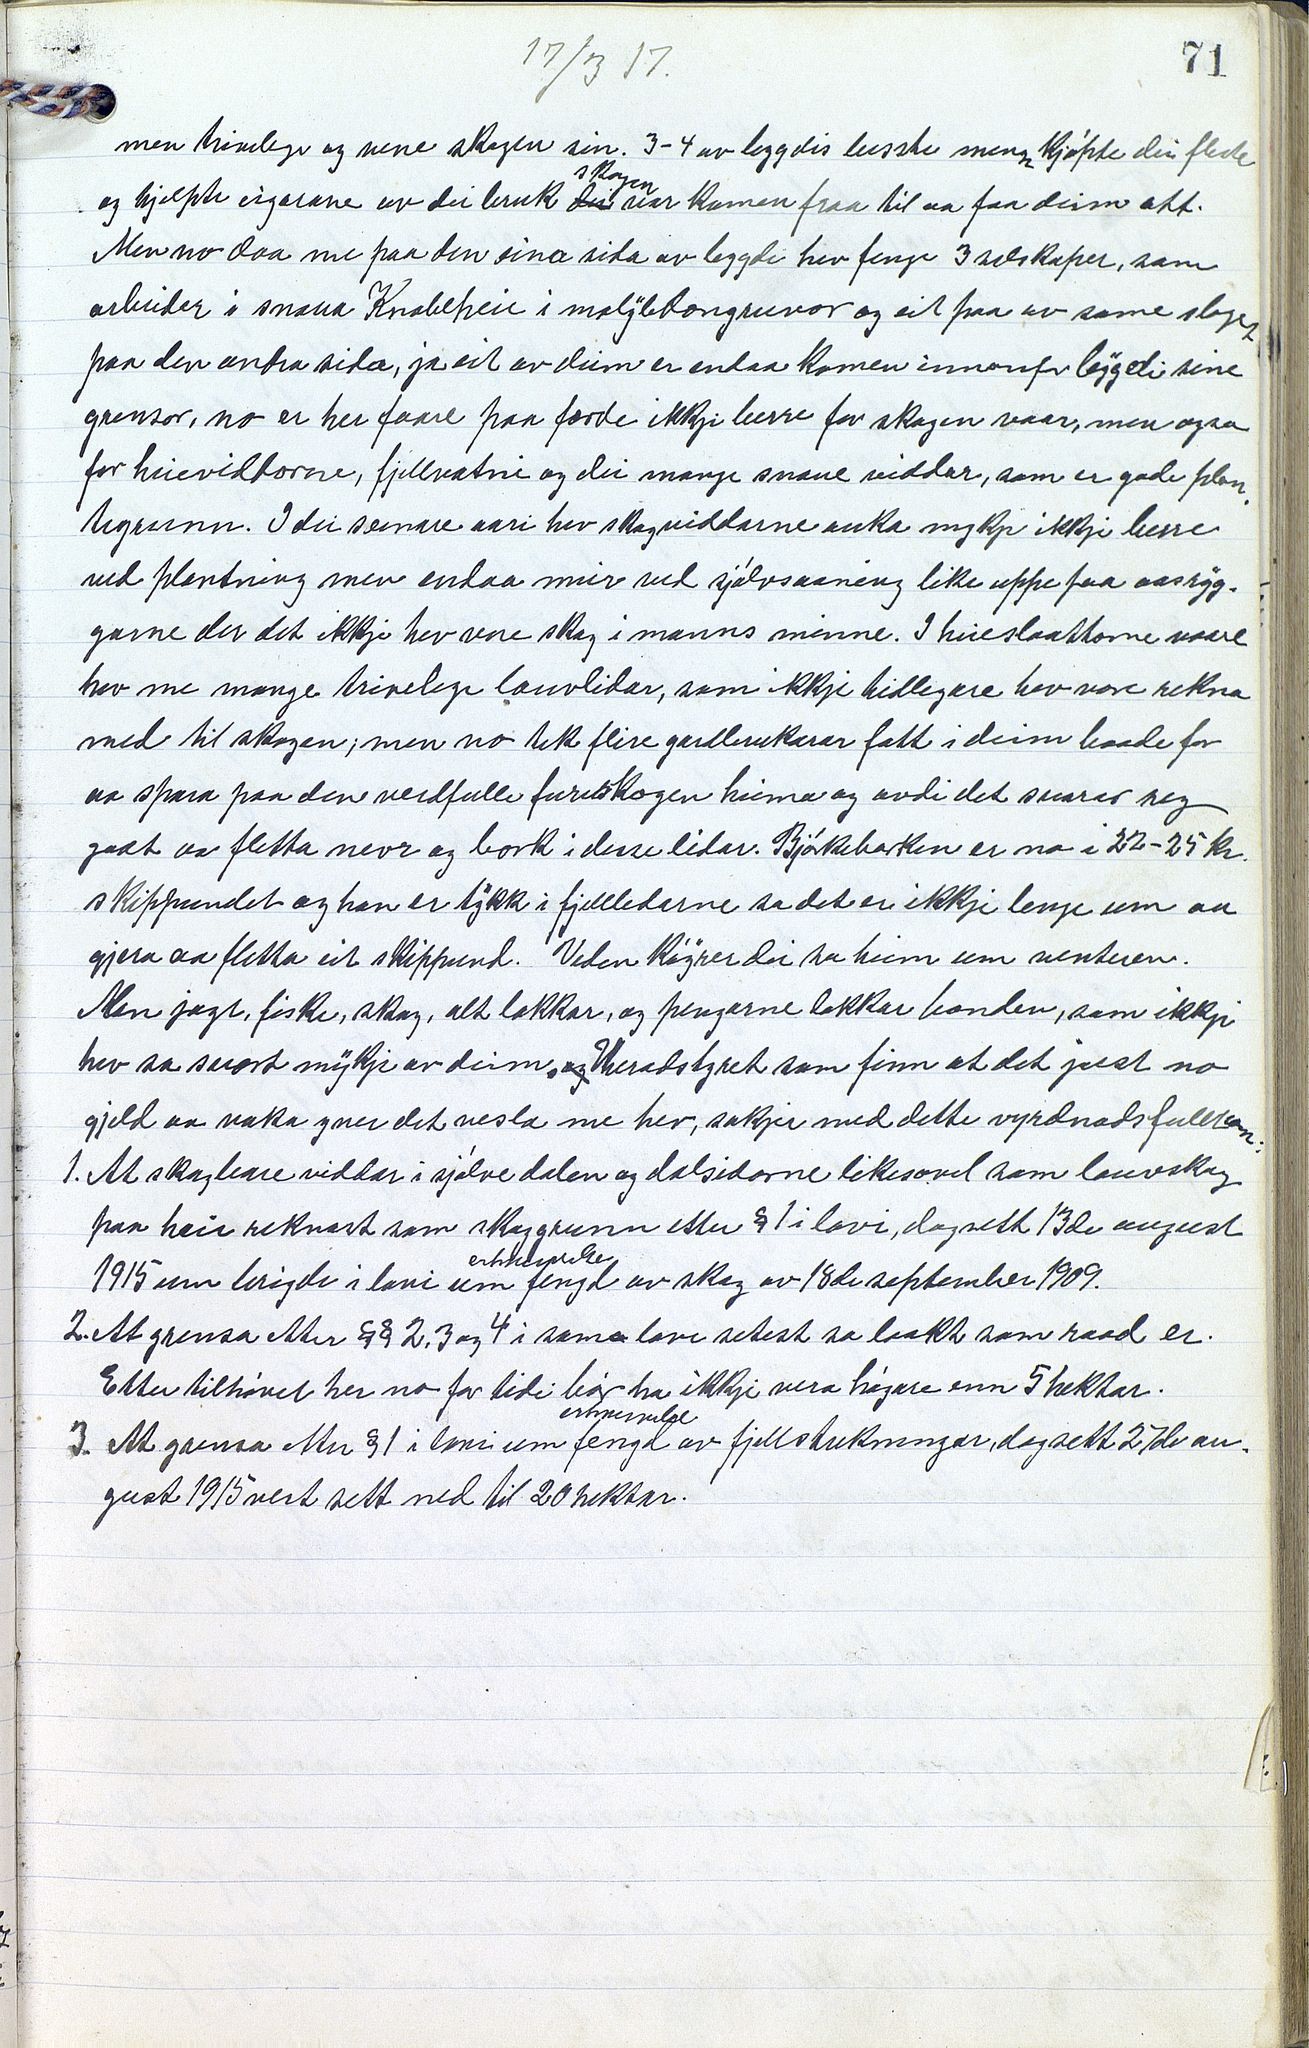 17/3 17.
71
men trivelege og vene skogen sin. 3-4 av bygdis beste menn kjøpte dei fleste
og hjelpte eigarane av dei bruk dei skogen var komen fraa til aa faa deim att.
Men no daa me paa den eina sida av bygdi hev fenge 3 selskaper, som
arbeider i snaua Knabeheie i molybdongruvor og eit paa av same slaget
paa den andra sida, ja eit av deim er endaa komen innanfor bygdi sine
grensor, no er her faare paa færde ikkje berre for skogen vaar, men ogsa
for heievidborne, fjellvatni og dei mange snaue viddar, som er gode plan-
tegrunn. I dei seinare aari hev skogviddarne auka mykje ikkje berre
ved plantning men endaa meir ved sjølvsaaning like uppe paa aasryg-
garne der det ikkje hev vore skog i manns minne. I heieslaattorne vaare
hev me mange trivelege lauvlidar, som ikkje tidlegare hev vore rekna
med til skogen; men no tek fleire gardbrukarar fatt i deim baade for
aa spara paa den verdfulle furuskogen heima og avdi det svarar seg
godt aa fletta nevr og bork i desse lidar. Bjørkeborken er no i 22-25 kr.
skippundet og han er tykk i fjellidarne so det er ikkje lenge um aa
gjera aa fletta eit skippund. Veden køyrer dei so heim um venteren.
Men jagt, fiske, skog, alt lokkar, og pengarne lokkar bonden, som ikkje
hev so svært mykje av deim. og Heradstyret som finn at det just no
gjeld aa vaka yver det vesla me hev, søkjer med dette vyrdnadsfullt om:
1. At skogbare viddar i sjølve dalen og dalsidorne likesovel som lauvskog
paa heie reknast som skoggrunn etter § 1 i lovi, dagsett 13de august
1915 um brigde i lovi um ershvervelse fengd av skog av 18de september 1909.
2. At grensa etter §§ 2, 3 og 4 i same love setest so laakt som raad er.
Etter tilhøvet her no for tidi bør ho ikkje vera høgare enn 5 hektar.
3. At grensa etter § 1 i lovi um erhvervelse fengd av fjellstrekningar, dagsett 27de au-
gust 1915 vert sett ned til 20 hektar.